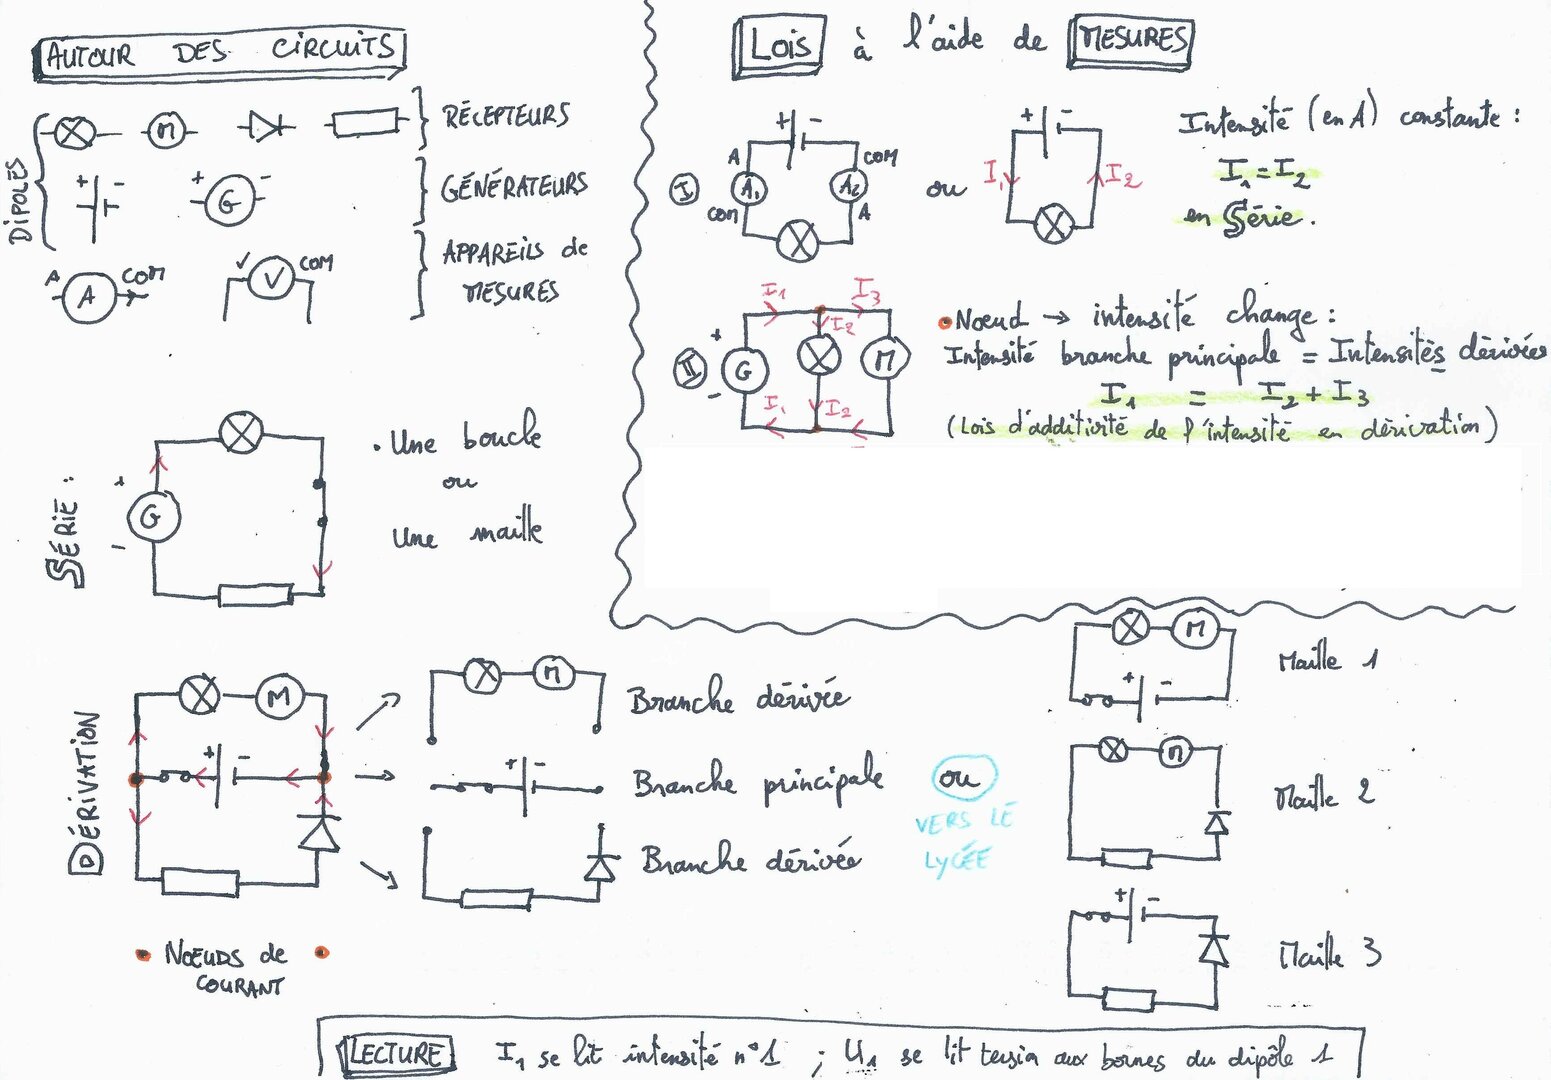 AUTOUR DES CIRCUITS
DIPOLES
M
RÉCEPTEURS
+ -
+ G -
GÉNÉRATEURS
A A COM
V V COM
APPAREILS de
MESURES
SÉRIE :
+ G -
. Une boucle
ou
Une maille
DÉRIVATION
M
+ -
NŒUDS de
COURANT
M
Branche dérivée
+ -
Branche principale
Branche dérivée
ou
VERS LE
LYCÉE
M
+ -
Maille 1
M
Maille 2
+ -
Maille 3
LOIS à l'aide de MESURES
I
+ -
A COM
A1 A2
COM A
ou
+ -
I1 I2
Intensité (en A) constante :
I1 = I2
en Série.
II
I1 I3
+ I2
G M
-
I1 I2
Nœud → intensité change :
Intensité branche principale = Intensités dérivées
I1 = I2 + I3
(Lois d'additivité de l'intensité en dérivation)
LECTURE I1 se lit intensité n°1 ; U1 se lit tension aux bornes du dipôle 1